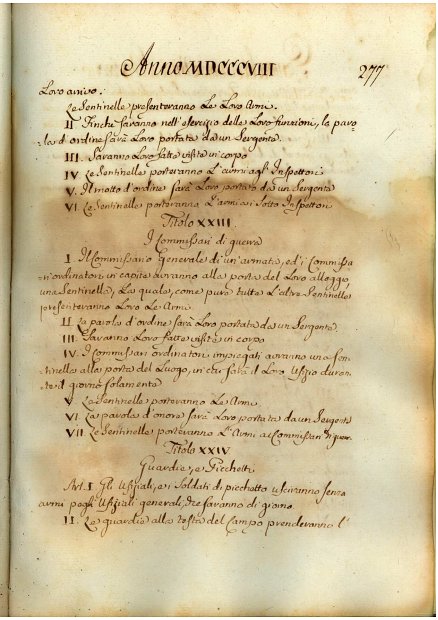 Anno MDCCCVIII
277
Loro arrivo.
Le Sentinelle presenteranno Le Loro Armi.
II Finche saranno nell'esercizio delle Loro funzioni, la paro-
la d'ordine sarà Loro portata da un Sergente.
III. Saranno Loro fatte visite in corpo
IV. Le Sentinelle porteranno L'armi agli Inspettori
V. Il motto d'ordine sarà Loro portato da un Sergente
VI. Le Sentinelle porteranno L'armi ai Sotto Inspettori
Titolo XXIII.
I Commissari di guerra
I. Il Commissario Generale di un'armata, ed i Commissa-
ri ordinatori in capite avranno alla porta del Loro alloggio
una Sentinella, La quale, come pure tutte L'altre Sentinelle
presenteranno Loro Le Armi
II. La parola d'ordine sarà Loro portata da un Sergente.
III. Saranno Loro fatte visite in corpo
IV. I Commissari ordinatori impiegati avranno una Sen-
tinella alla porta del Luogo, in cui sarà il Loro Ufizio duran-
te il giorno solamente
V. Le Sentinelle porteranno Le Armi
VI. La parola d'onore sarà Loro portata da un Sergente
VII. Le Sentinelle porteranno L'Armi ai Commissari di guerra
Titolo XXIV
Guardie, e Picchetti
Art. I Gli Ufiziali, e i Soldati di picchetto usciranno senza
armi pegli Ufiziali generali, che saranno di giorno
II. Le guardie alla testa del Campo prenderanno l'